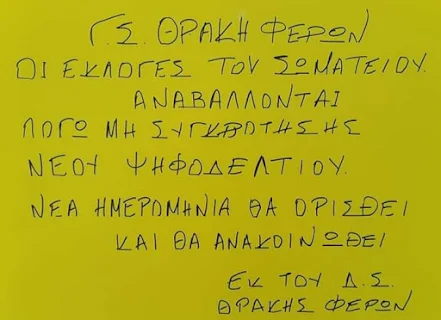 Γ.Σ. ΘΡΑΚΗ ΦΕΡΩΝ
ΟΙ ΕΚΛΟΓΕΣ ΤΟΥ ΣΩΜΑΤΕΙΟΥ.
ΑΝΑΒΑΛΛΟΝΤΑΙ
ΛΟΓΩ ΜΗ ΣΥΓΚΡΟΤΗΣΗΣ
ΝΕΟΥ ΨΗΦΟΔΕΛΤΙΟΥ.
ΝΕΑ ΗΜΕΡΟΜΗΝΙΑ ΘΑ ΟΡΙΣΘΕΙ
ΚΑΙ ΘΑ ΑΝΑΚΟΙΝΩΘΕΙ
ΕΚ ΤΟΥ Δ.Σ.
ΘΡΑΚΗΣ ΦΕΡΩΝ